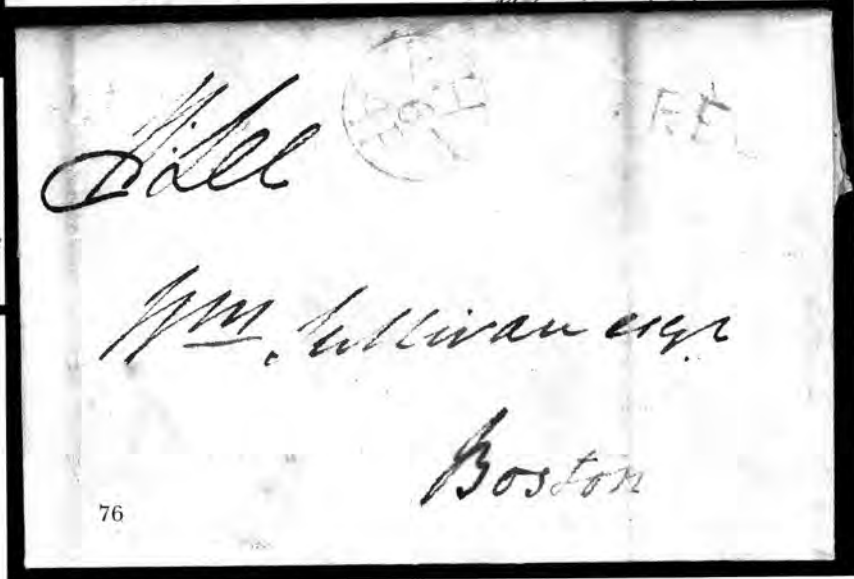 Lee
Wm. Sullivan esqr
Boston
76